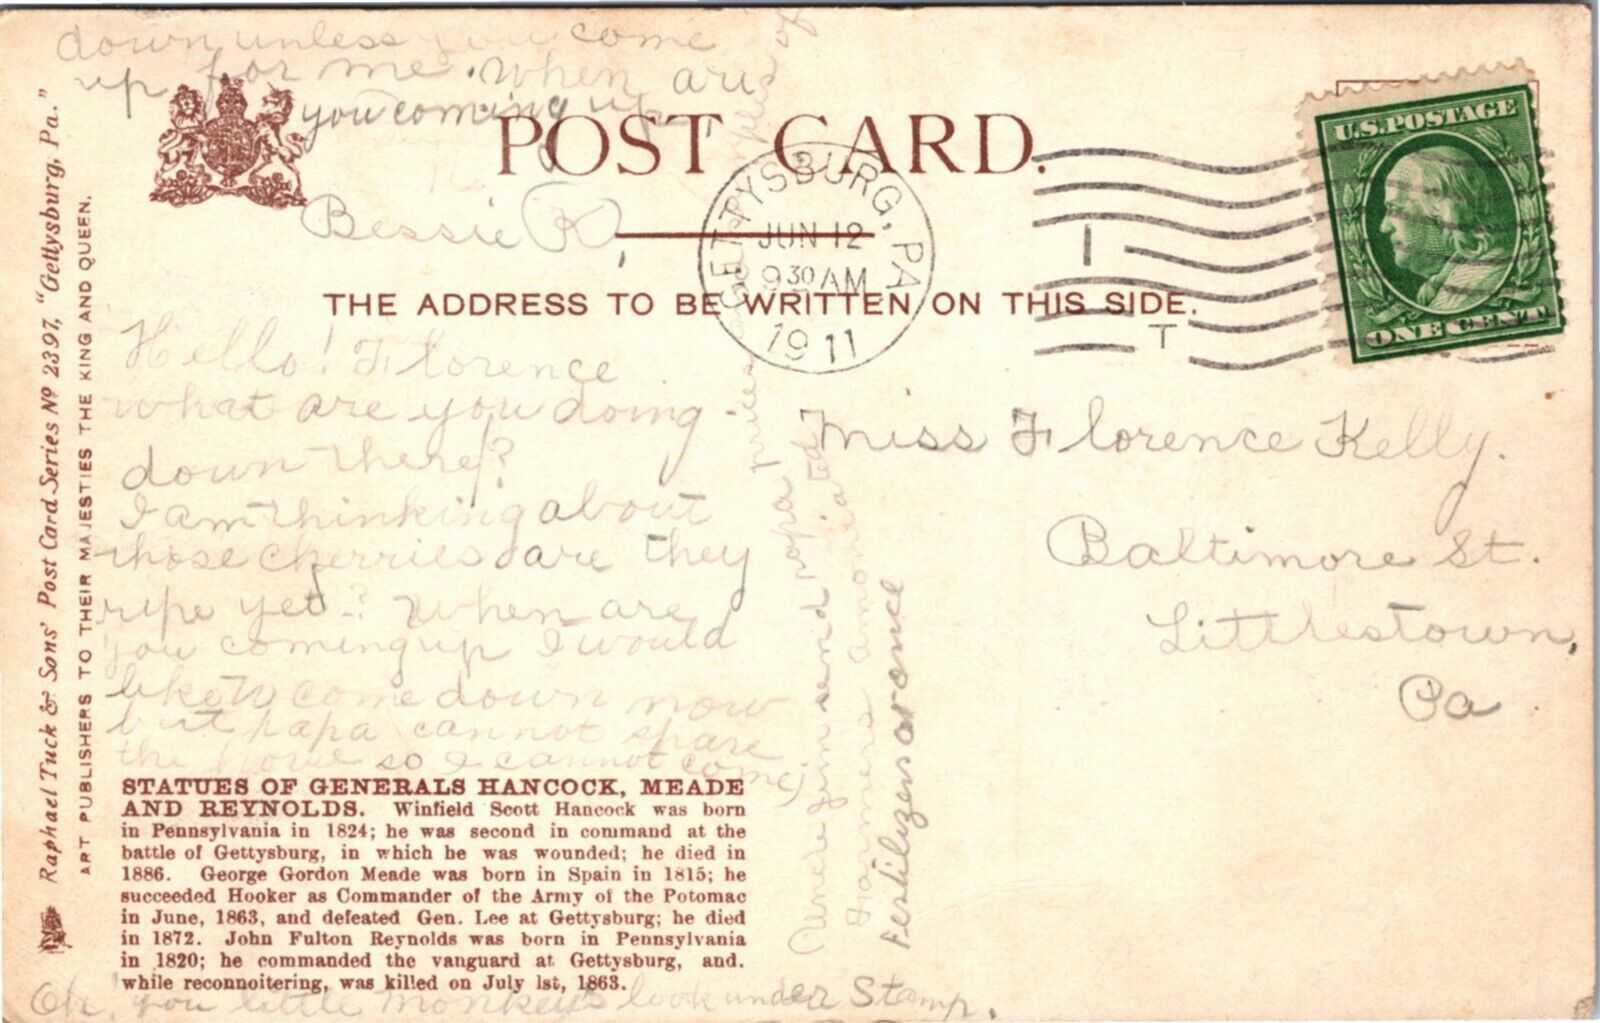 down unless you come
up for me. When are
you coming up
POST CARD.
Bessie K.
GETTYSBURG, PA
JUN 12
9 30 AM
1911
1
T
U.S. POSTAGE
ONE CENT
THE ADDRESS TO BE WRITTEN ON THIS SIDE.
Hello! Florence
what are you doing
down there?
I am thinking about
those cherries are they
ripe yet? When are
you coming up I would
like to come down now
but papa cannot spare
the horse so I cannot come
Miss Florence Kelly.
Baltimore St.
Littlestown,
Pa
STATUES OF GENERALS HANCOCK, MEADE
AND REYNOLDS. Winfield Scott Hancock was born
in Pennsylvania in 1824; he was second in command at the
battle of Gettysburg, in which he was wounded; he died in
1886. George Gordon Meade was born in Spain in 1815; he
succeeded Hooker as Commander of the Army of the Potomac
in June, 1863, and defeated Gen. Lee at Gettysburg; he died
in 1872. John Fulton Reynolds was born in Pennsylvania
in 1820; he commanded the vanguard at Gettysburg, and.
while reconnoitering, was killed on July 1st, 1863.
Oh, you little monkeys look under Stamp.
Raphael Tuck & Sons' Post Card Series No 2397, "Gettysburg, Pa."
ART PUBLISHERS TO THEIR MAJESTIES THE KING AND QUEEN.
Uncle Jim send papa prices samples of
Farmers amoniated
Fertilizers at once